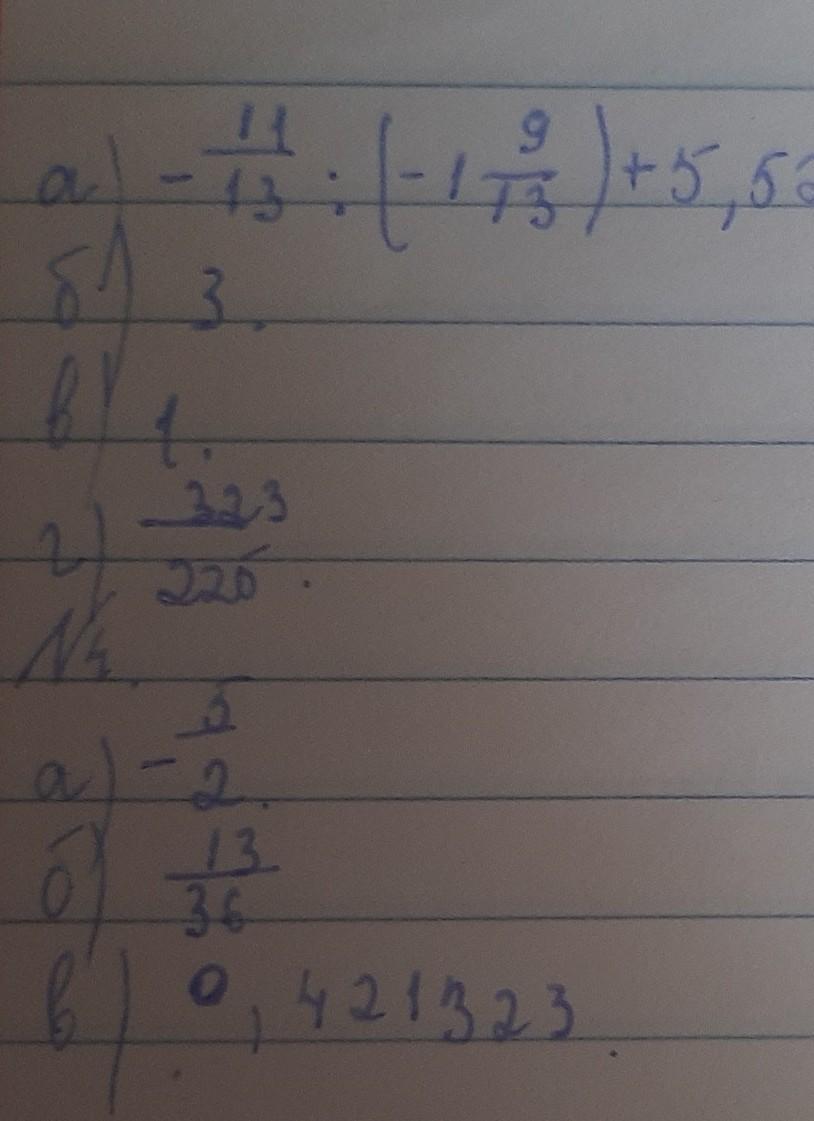 а) - 11/13 : (-1 9/13) + 5,5
б) 3.
в) 1.
г) 323/225.
№4.
а) - 5/2.
б) 13/36
в) 0,421323.